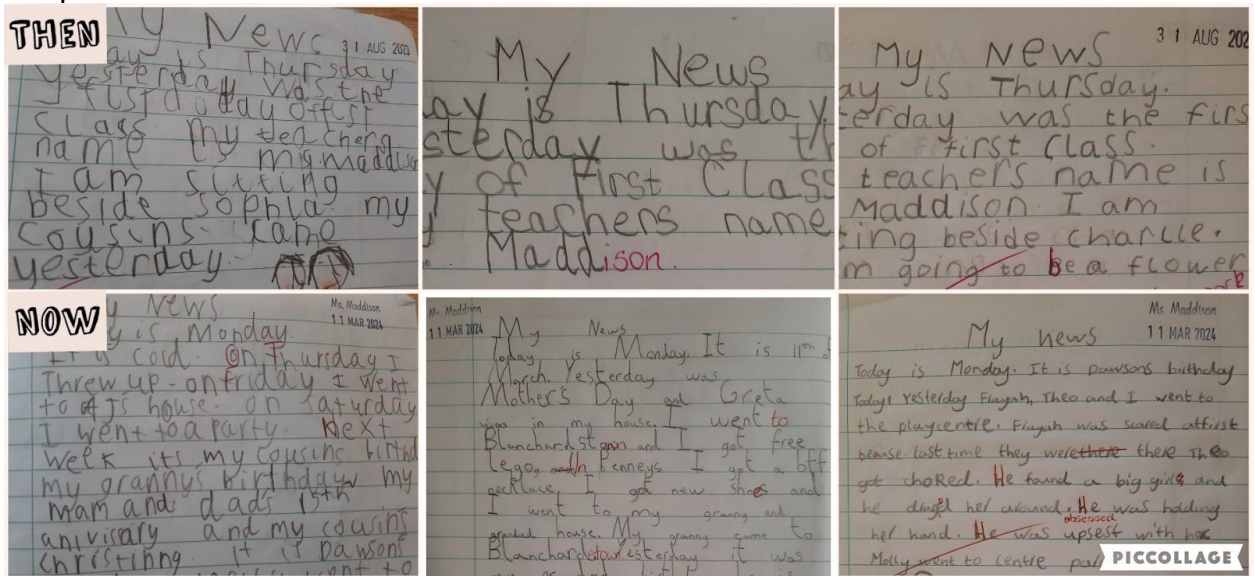 THEN
My News
31 AUG 2023
ay is Thursday
Yesterday was the
first day of first
class my teacherg
name is ms maddison
I am sitting
beside Sophia. my
cousins. came
yesterday.
My News
ay is Thursday.
sterday was th
y of First Class
y teachers name
Maddison.
31 AUG 202
My News
ay is Thursday.
terday was the firs
of first class.
teachers name is
Maddison. I am
ting beside charlie.
m going to be a flower
NOW
y News
Ms. Maddison
11 MAR 2024
y is Monday.
It is cold. On Thursday I
Threw up. on friday I went
to house. on saturday
I went to a party. Next
week its my cousins birthd
my grannys birthday my
mam and dads 15th
anivisary and my cousins
christinng. It is Dawsons
Ms Maddison
11 MAR 2024
My News
Today is Monday. It is 11th of
March. Yesterday was
Mother's Day and Greta
was in my house. I went to
Blanchardstown and I got free
Lego, in Penneys I got a bff
necklace, I got new shoes and
I went to my granny and
grandad house. My granny came to
Blanchardstown yesterday it was
Ms Maddison
11 MAR 2024
My news
Today is Monday. It is Dawsons birthday
Today. Yesterday Fiayah, Theo and I went to
the playcentre. Fiayah was scared atfirst
last time they were there there Theo
got choked. He found a big girl and
he her around. He was holding
obsessed
her hand. He was upsest with her
Molly went to centre
PICCOLLAGE